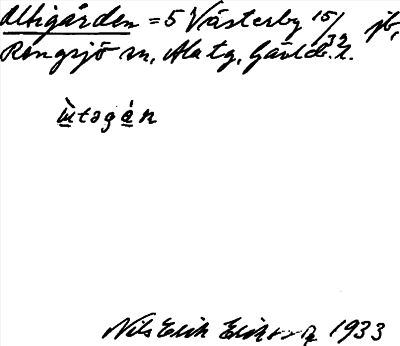 Utigården = 5 Västerby 15/32 jb,
Rengsjö sn, Ala tg, Gävleb. l.
ùtəgá̱n
Nils Erik Erikson 1933